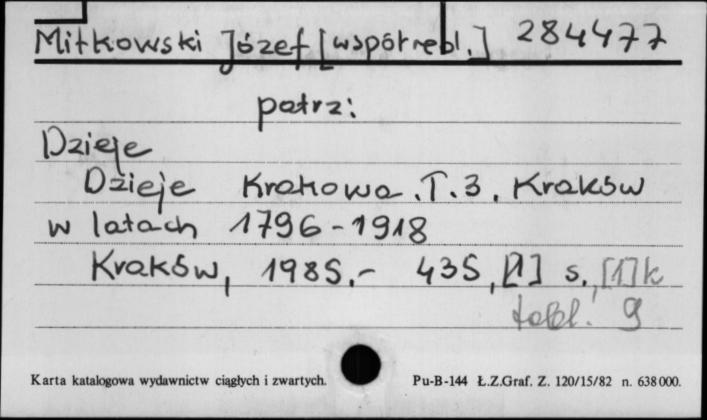 Mitkowski Józef [współredl.] 284477
patrz:
Dzieje
Dzieje Krakowa. T. 3, Kraków
w latach 1796-1918
Kraków, 1985.- 435, [1] s., [1] k
tabl. 9
Karta katalogowa wydawnictw ciągłych i zwartych. Pu-B-144 Ł.Z.Graf. Z. 120/15/82 n. 638000.